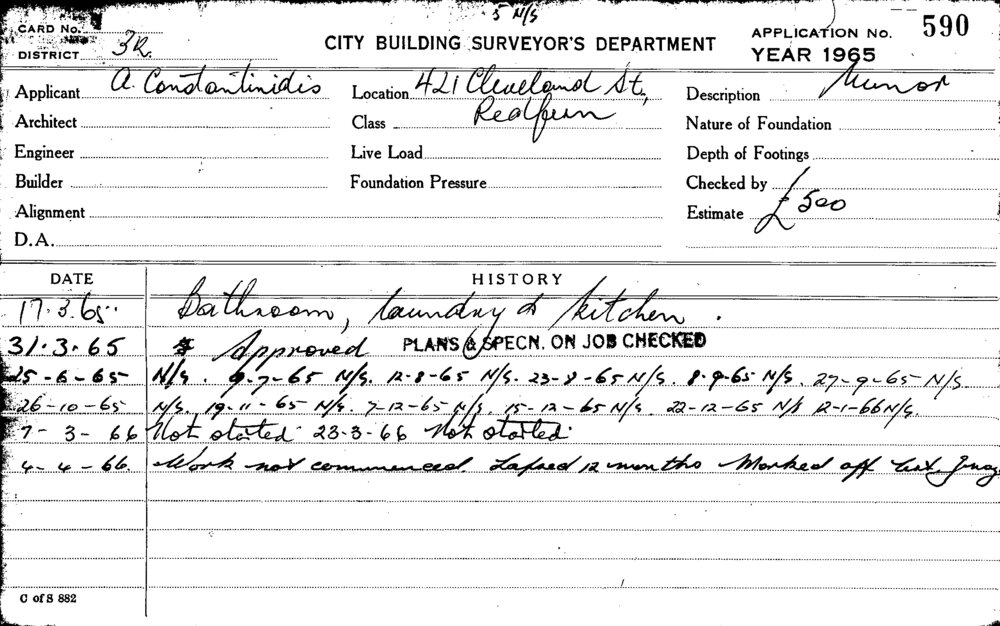 5 N/S
CARD No.
DISTRICT 3R.
CITY BUILDING SURVEYOR'S DEPARTMENT
APPLICATION No. 590
YEAR 1965
Applicant A. Constantinidis
Location 421 Cleveland St,
Redfern
Description Minor
Architect
Class
Nature of Foundation
Engineer
Live Load
Depth of Footings
Builder
Foundation Pressure
Checked by
Alignment
Estimate £500
D.A.
DATE HISTORY
17.3.65 Bathroom, laundry & kitchen.
31.3.65 Approved PLANS & SPECN. ON JOB CHECKED
25-6-65 N/S. 9-7-65 N/S. 12-8-65 N/S. 23-8-65 N/S. 8-9-65 N/S. 27-9-65 N/S.
26-10-65 N/S. 19-11-65 N/S. 7-12-65 N/S. 15-12-65 N/S. 22-12-65 N/S 12-1-66 N/S.
7-3-66 Not started 23-3-66 Not started
4-4-66. Work not commenced. Lapsed 12 months Marked off
C of S 882